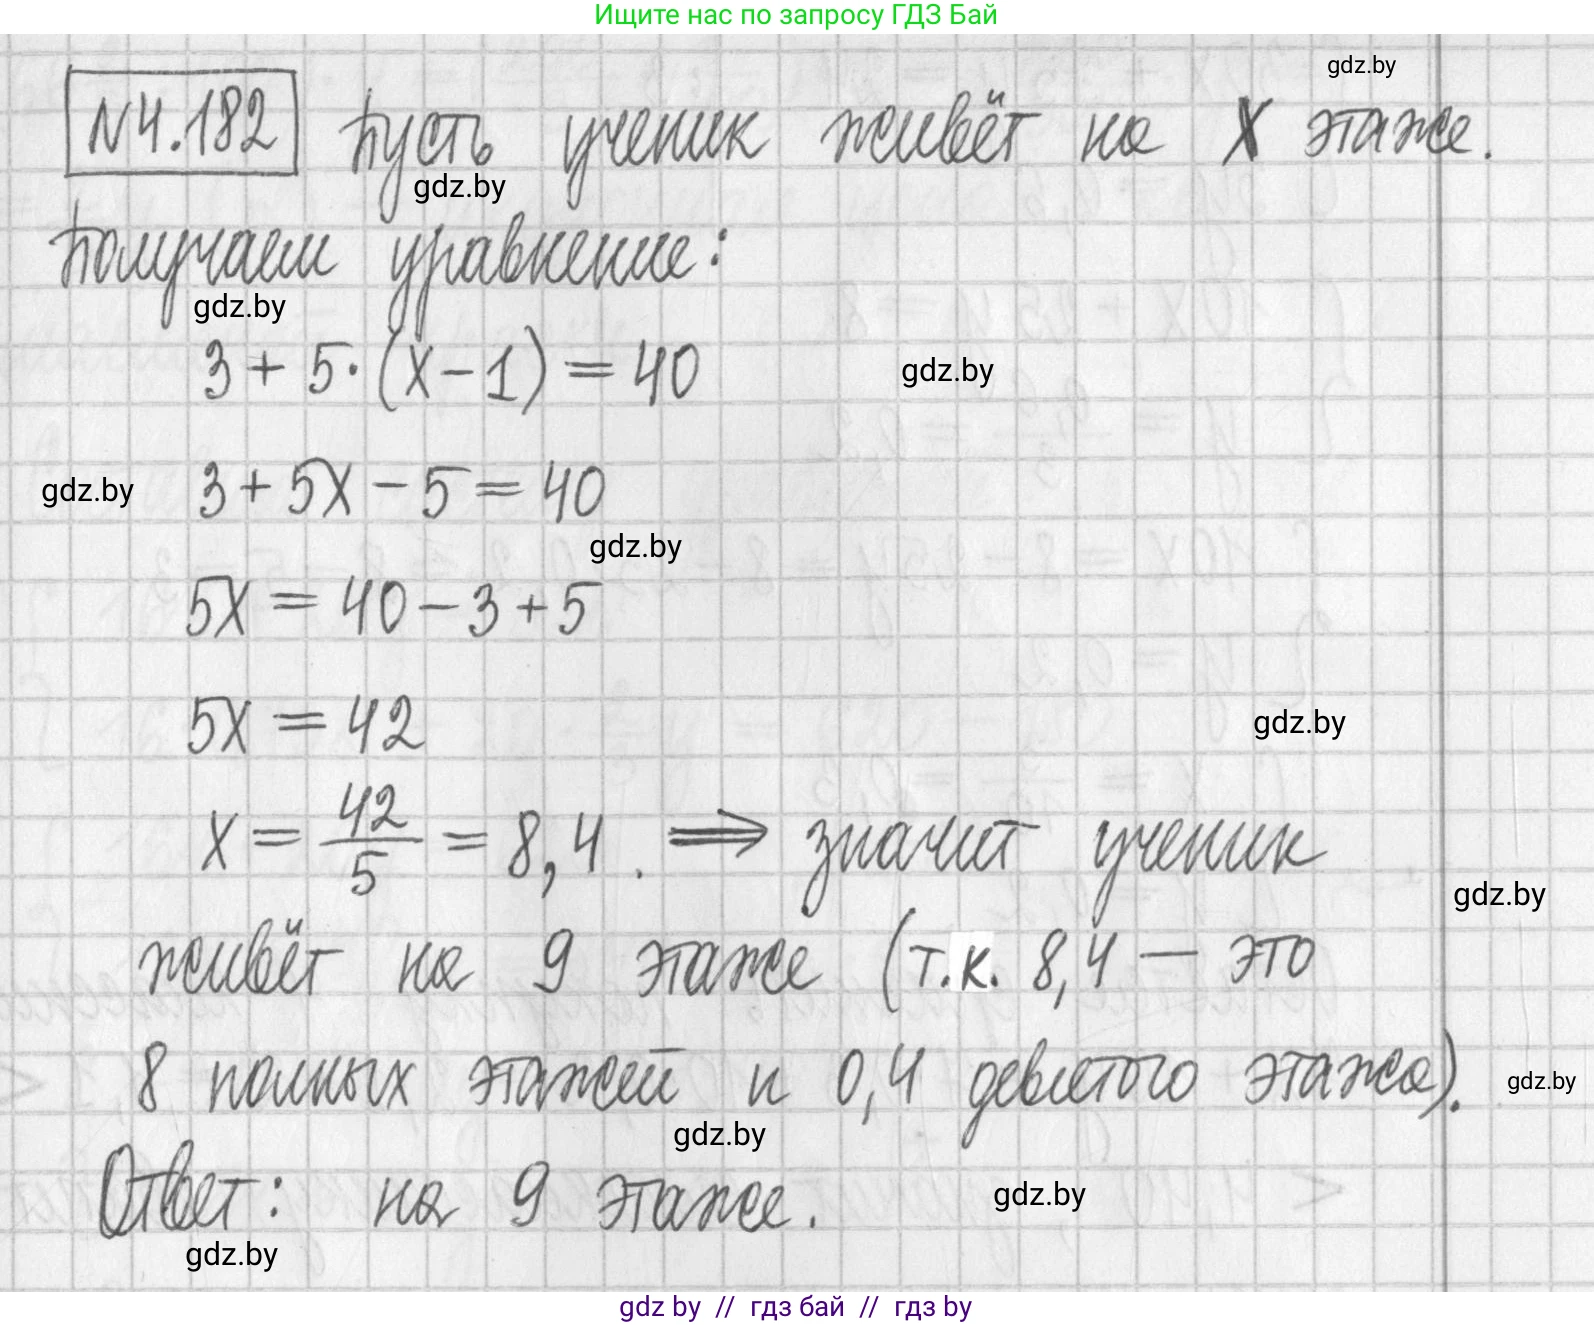 Ищите нас по запросу ГДЗ Бай
gdz.by
N4.182 Пусть ученик живёт на X этаже.
gdz.by
Получаем уравнение:
gdz.by
3 + 5·(x-1) = 40
gdz.by
gdz.by
3 + 5x - 5 = 40
gdz.by
5x = 40 - 3 + 5
5x = 42
gdz.by
x = 42/5 = 8,4. ⟹ значит ученик
gdz.by
живёт на 9 этаже (т.к. 8,4 — это
8 полных этажей и 0,4 девятого этажа).
gdz.by
gdz.by
Ответ: на 9 этаже.
gdz.by
gdz.by
gdz by // гдз бай // гдз by